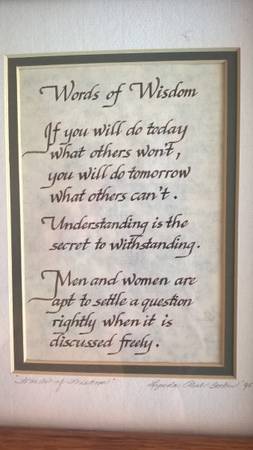 Words of Wisdom
If you will do today
what others won't,
you will do tomorrow
what others can't.
Understanding is the
secret to withstanding.
Men and women are
apt to settle a question
rightly when it is
discussed freely.
"Words of Wisdom"